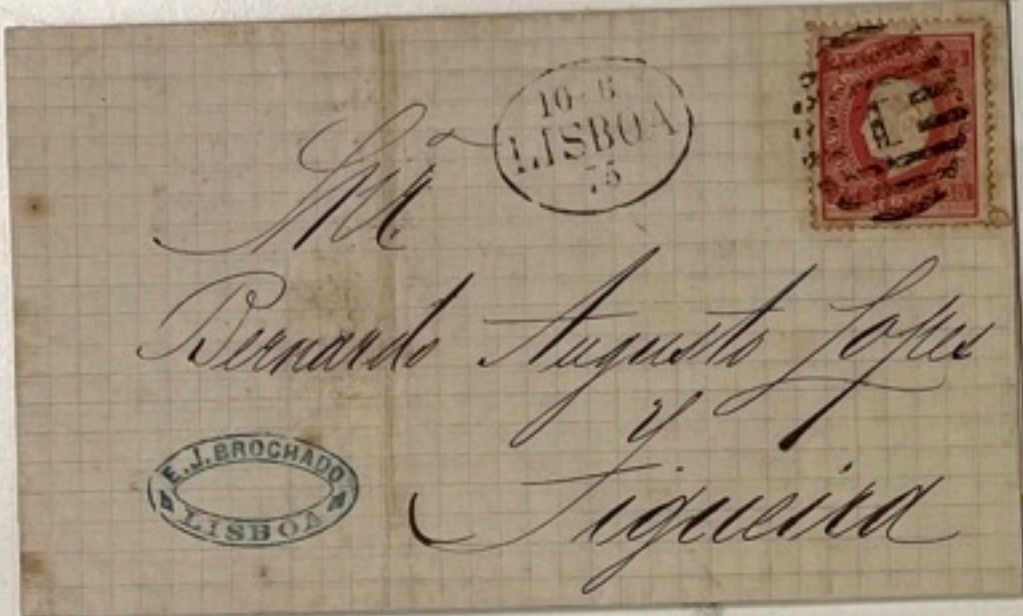 10-6
LISBOA
75
1
Snr.
Bernardo Augusto Lopes
Figueira
E. J. BROCHADO
LISBOA